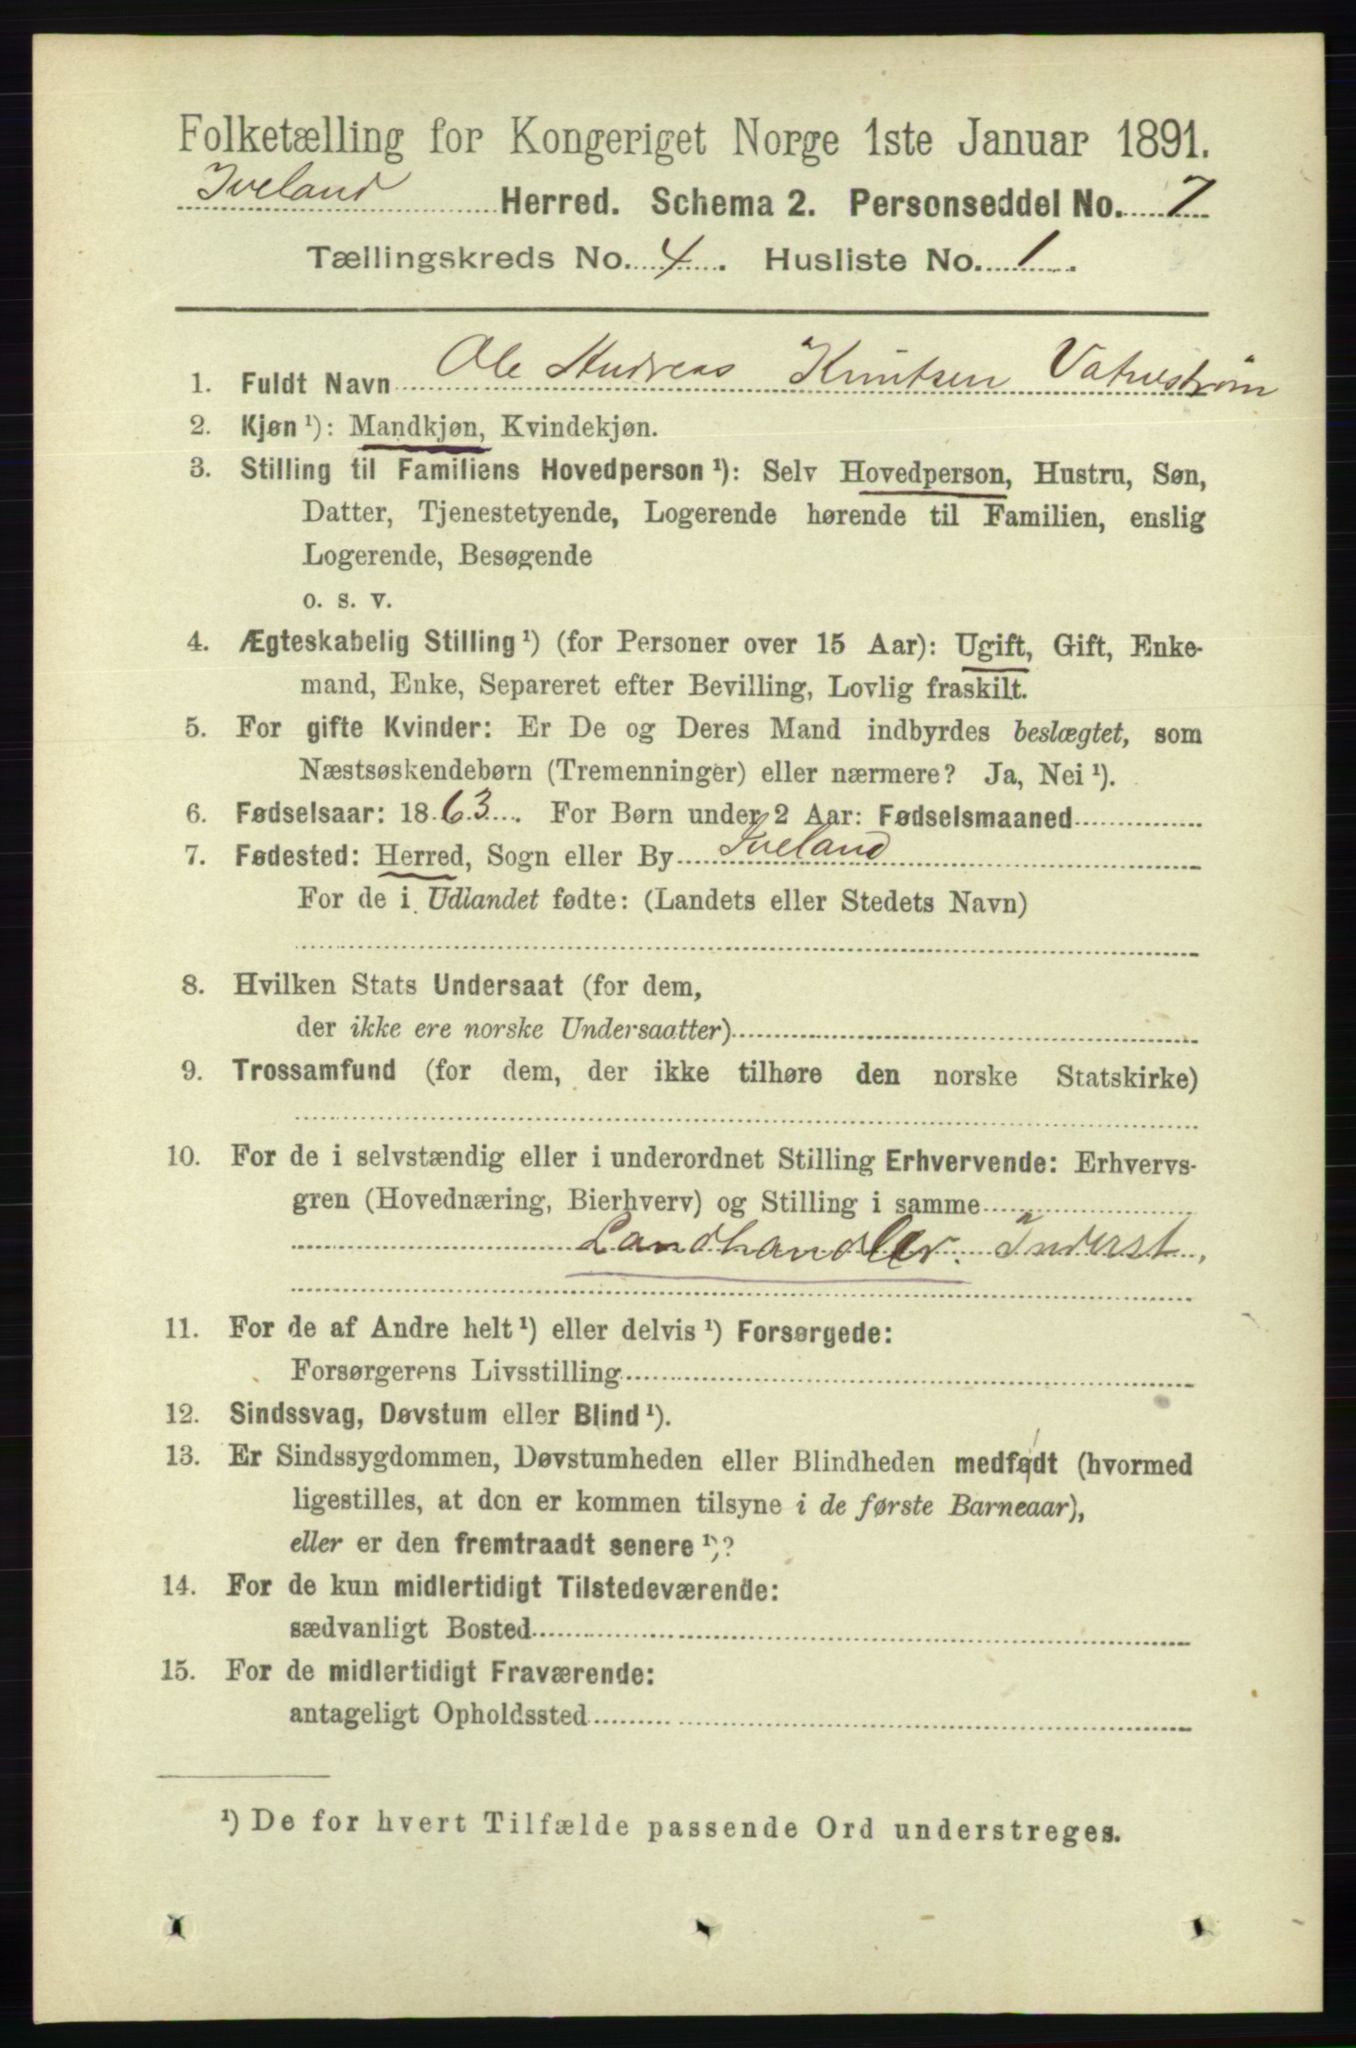 Folketælling for Kongeriget Norge 1ste Januar 1891.
Iveland Herred. Schema 2. Personseddel No. 7
Tællingskreds No. 4. Husliste No. 1.
1. Fuldt Navn Ole Andreas Knutsen Vatnestrøm
2. Kjøn ¹): Mandkjøn, Kvindekjøn.
3. Stilling til Familiens Hovedperson ¹): Selv Hovedperson, Hustru, Søn,
Datter, Tjenestetyende, Logerende hørende til Familien, enslig
Logerende, Besøgende
o. s. v.
4. Ægteskabelig Stilling ¹) (for Personer over 15 Aar): Ugift, Gift, Enke-
mand, Enke, Separeret efter Bevilling, Lovlig fraskilt.
5. For gifte Kvinder: Er De og Deres Mand indbyrdes beslægtet, som
Næstsøskendebørn (Tremenninger) eller nærmere? Ja, Nei ¹).
6. Fødselsaar: 1863. For Børn under 2 Aar: Fødselsmaaned
7. Fødested: Herred, Sogn eller By Iveland
For de i Udlandet fødte: (Landets eller Stedets Navn)
8. Hvilken Stats Undersaat (for dem,
der ikke ere norske Undersaatter)
9. Trossamfund (for dem, der ikke tilhøre den norske Statskirke)
10. For de i selvstændig eller i underordnet Stilling Erhvervende: Erhvervs-
gren (Hovednæring, Bierhverv) og Stilling i samme
Landhandler. Inderst.
11. For de af Andre helt ¹) eller delvis ¹) Forsørgede:
Forsørgerens Livsstilling
12. Sindssvag, Døvstum eller Blind ¹).
13. Er Sindssygdommen, Døvstumheden eller Blindheden medfødt (hvormed
ligestilles, at den er kommen tilsyne i de første Barneaar),
eller er den fremtraadt senere ¹)?
14. For de kun midlertidigt Tilstedeværende:
sædvanligt Bosted
15. For de midlertidigt Fraværende:
antageligt Opholdssted
¹) De for hvert Tilfælde passende Ord understreges.